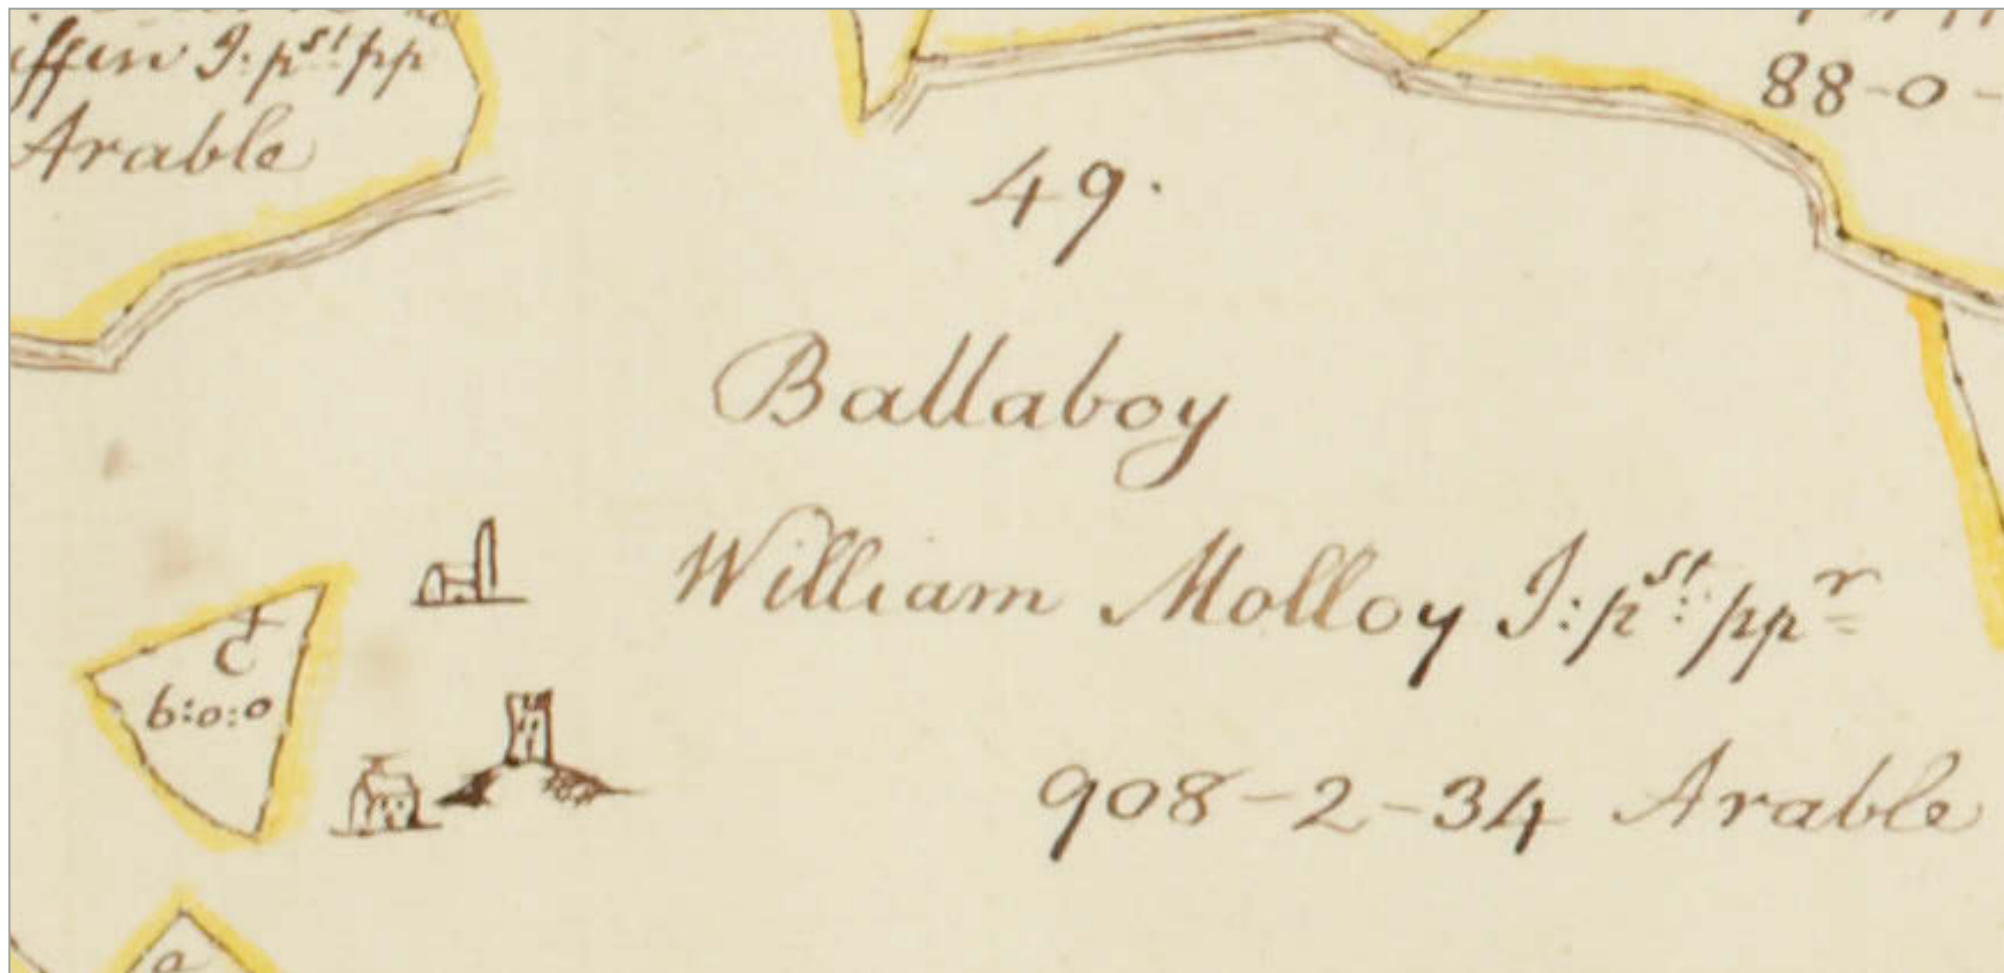 iffin I: pst: pp
Arable
88-0-
49.
Ballaboy
William Molloy I: pst: ppr
C
6:0:0
908-2-34 Arable
a